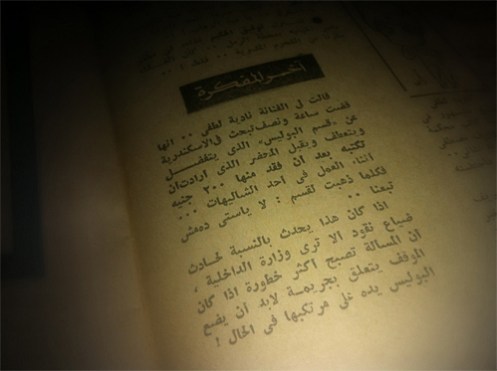 آخر المفكرة
قالت لى الفنانة نادية لطفى .. انها
قضت ساعة ونصف تبحث فى الاسكندرية
عن «قسم البوليس» الذى يتفضل
ويتعطف ويقبل المحضر الذى أرادت أن
تكتبه بعد أن فقد منها ٢٠٠ جنيه
أثناء العمل فى أحد الشاليهات ...
فكلما ذهبت لقسم : لا ياستى دهمش
تبعنا ..
اذا كان هذا يحدث بالنسبة لحادث
ضياع نقود الا ترى وزارة الداخلية ،
ان المسألة تصبح أكثر خطورة اذا كان
الموقف يتعلق بجريمة لابد أن يضع
البوليس يده على مرتكبها فى الحال !